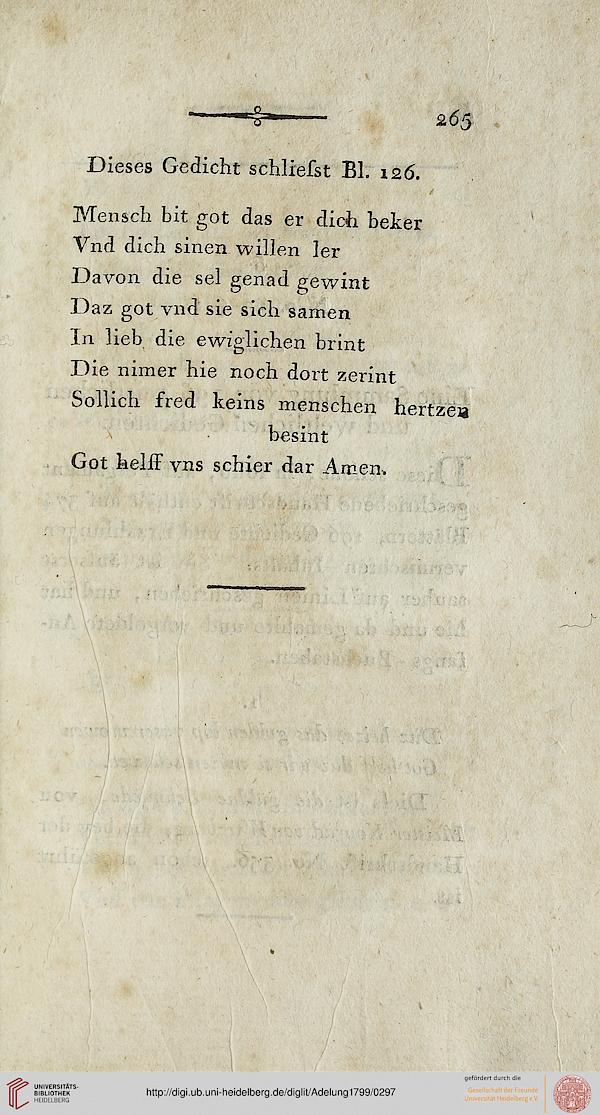 265
Dieses Gedicht schlieſst Bl. 126.
Mensch bit got das er dich beker
Vnd dich sinen willen ler
Davon die sel genad gewint
Daz got vnd sie sich samen
In lieb die ewiglichen brint
Die nimer hie noch dort zerint
Sollich fred keins menschen hertzen
besint
Got helff vns schier dar Amen.
UNIVERSITÄTS-
BIBLIOTHEK
HEIDELBERG
http://digi.ub.uni-heidelberg.de/diglit/Adelung1799/0297
gefördert durch die
Gesellschaft der Freunde
Universität Heidelberg e.V.